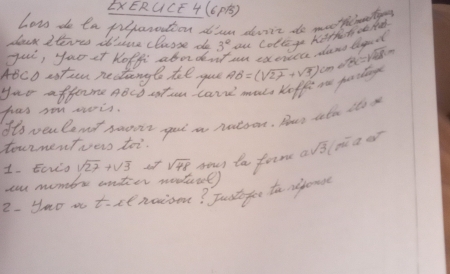 EXERCICE 4 (6 pts)
Lors de la préparation d'un devoir de mathématiques,
deux élèves d'une classe de 3e au Collège
qui, Yao et Koffi abordent un exercice dans lequel
ABCD est un rectangle tel que AB = (√27 + √3) cm et BC = √48 cm
Yao affirme ABCD est un carré mais Koffi ne partage
pas son avis.
Ils veulent savoir qui a raison. Pour cela ils se
tournent vers toi.
1- Ecris √27 + √3 et √48 sous la forme a√3 (où a est
un nombre entier naturel)
2- Yao a t-il raison ? Justifie ta réponse